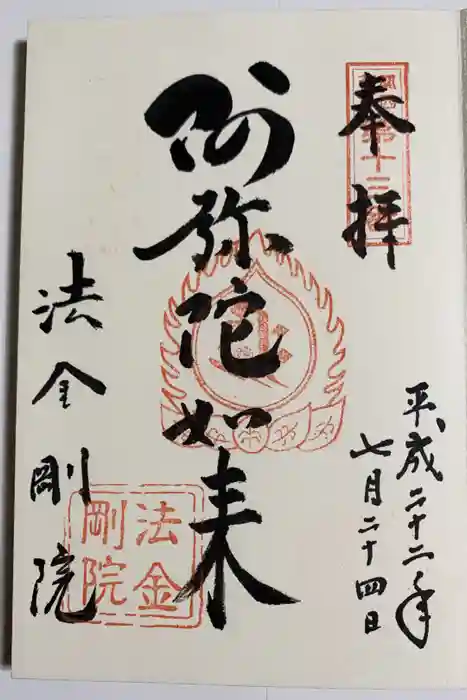 奉拝
第十三
平成二十二年
七月二十四日
阿弥陀如来
法金剛院
法金
剛院